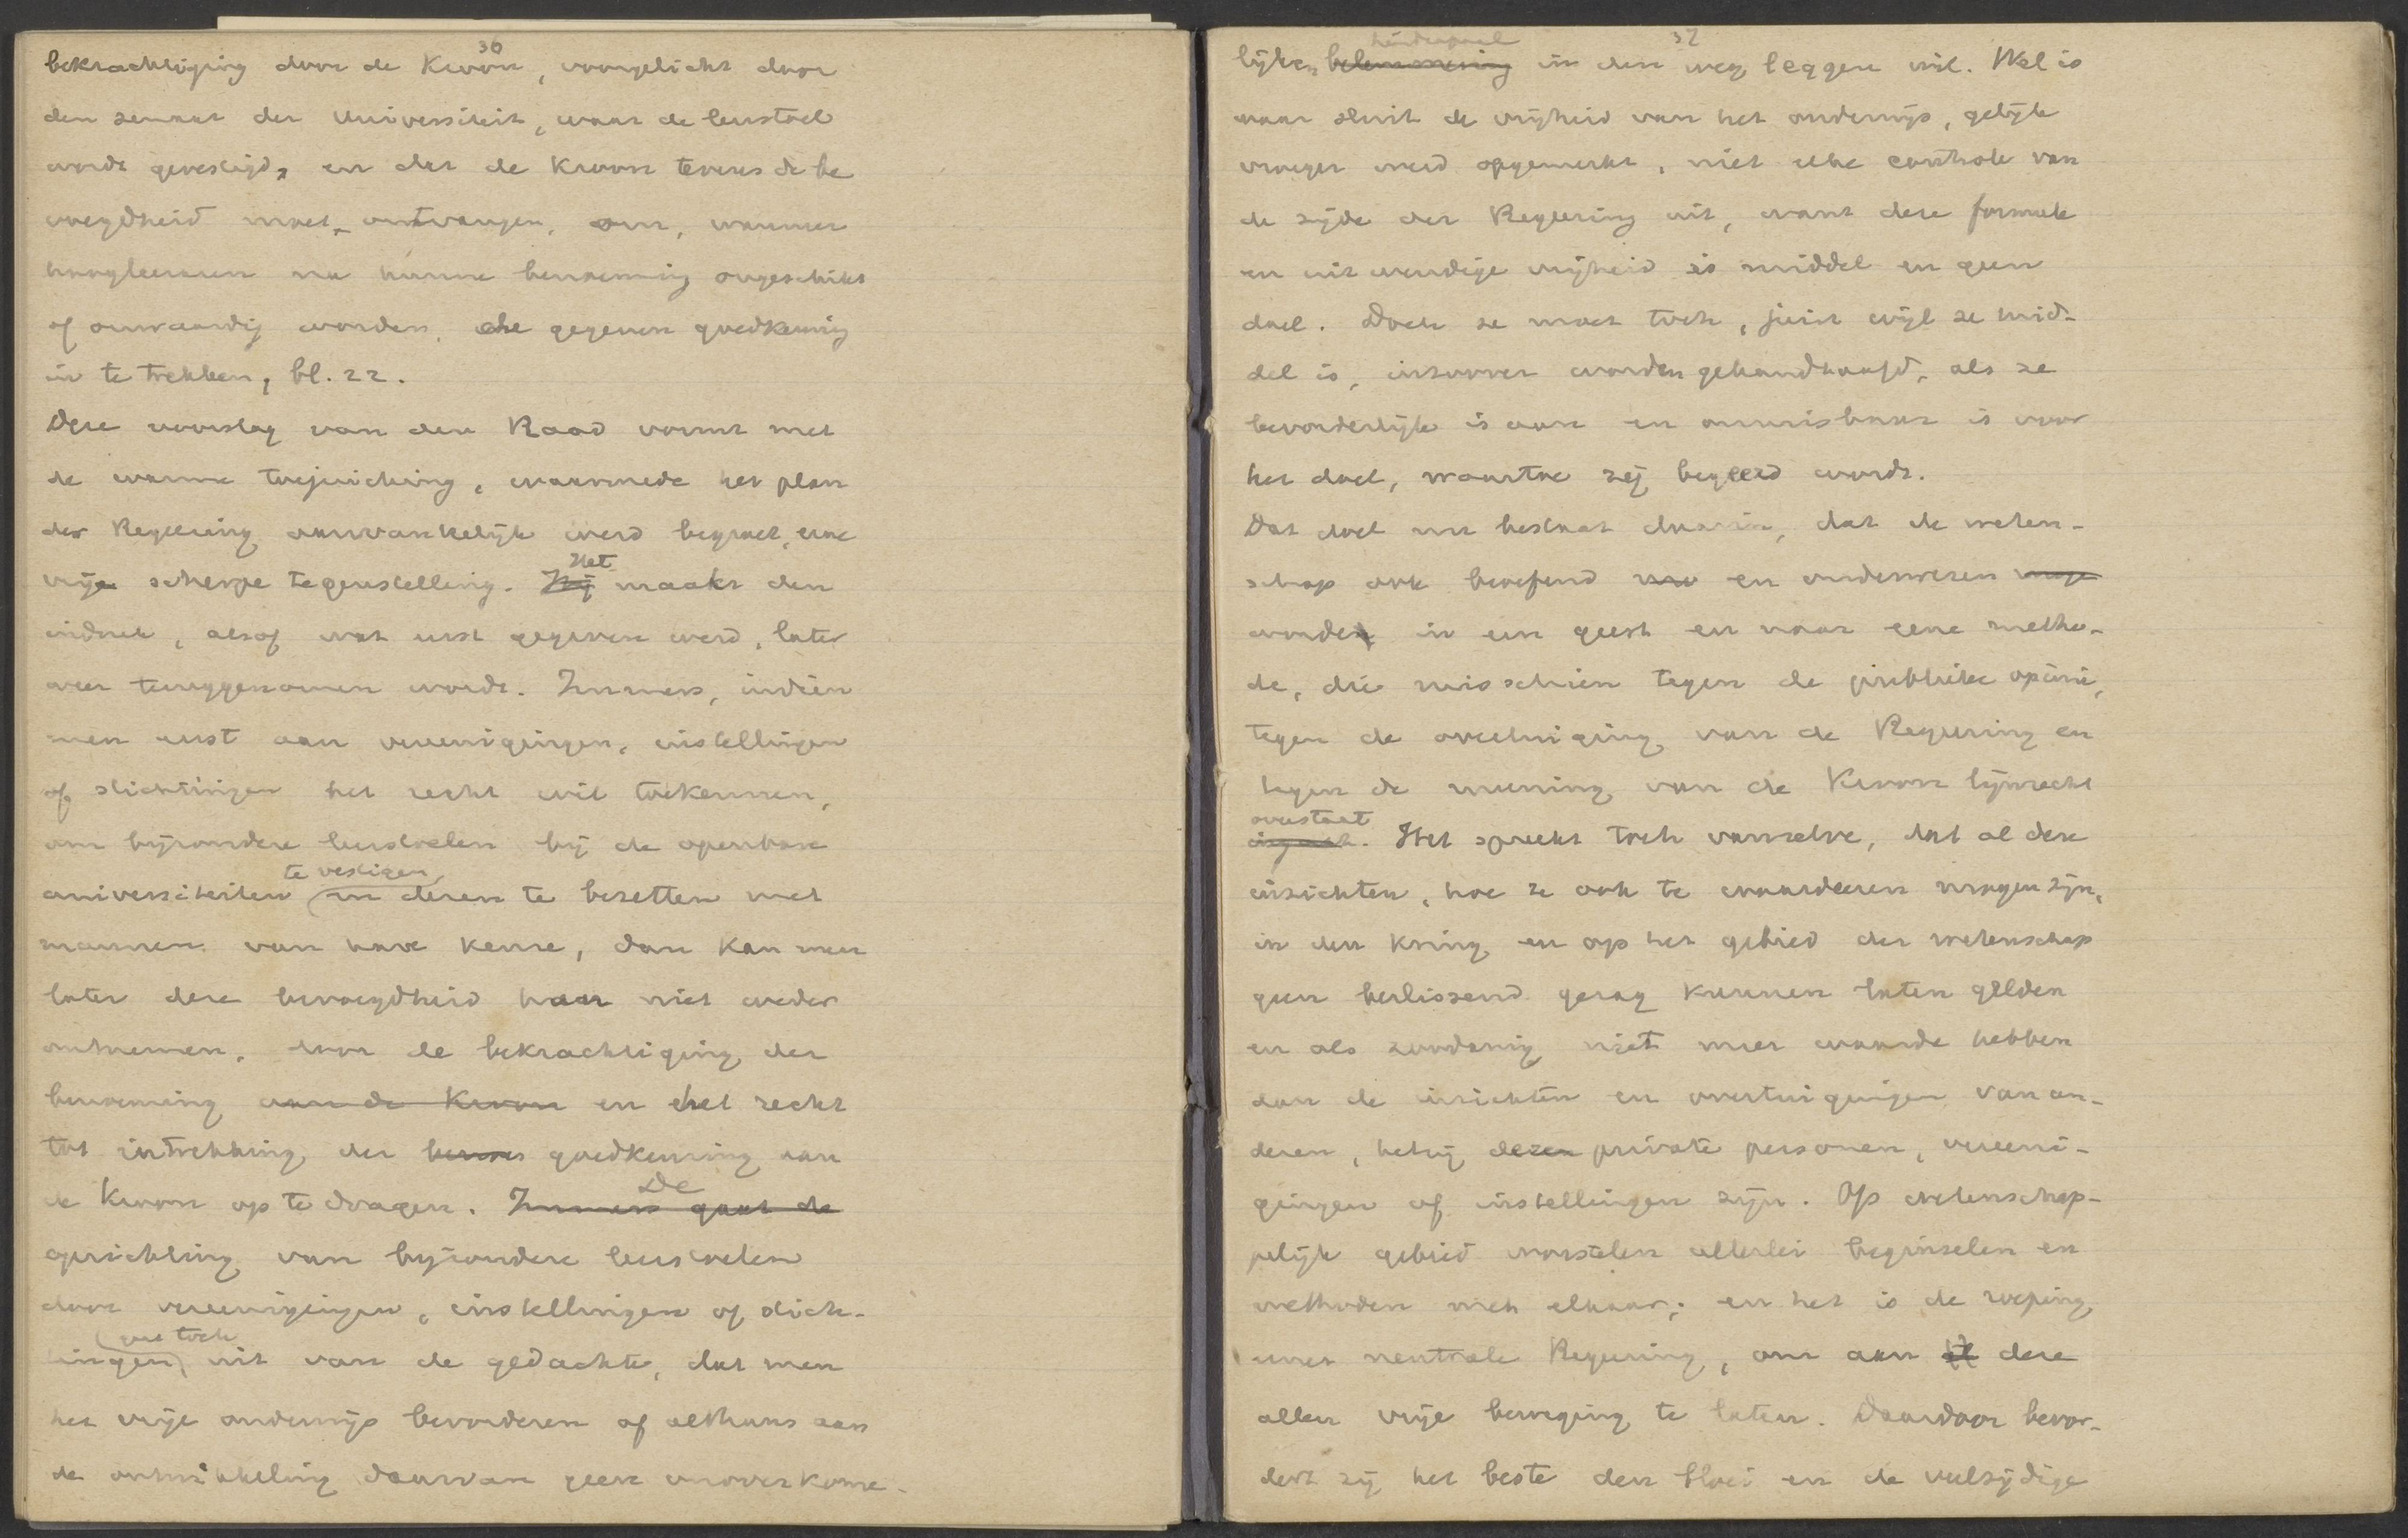 36
bekrachtiging door de Kroon, voorgelicht door
den senaat der Universiteit, waar de leerstoel
wordt gevestigd, en dat de Kroon tevens de be
voegdheid moet ontvangen, om, wanneer
hoogleeraren na hunne benoeming ongeschikt
of onwaardig worden, de gegeven goedkeuring
in te trekken, bl. 22.
Deze voorslag van den Raad vormt met
de warme toejuiching, waarmede het plan
der Regeering aanvankelijk werd begroet, eene
vrij scherpe tegenstelling. Zij Het maakt den
indruk, alsof wat eerst gegeven werd, later
weer teruggenomen wordt. Immers, indien
men eerst aan vereenigingen, instellingen
of stichtingen het recht wil toekennen,
om bijzondere leerstoelen bij de openbare
te vestigen
universiteiten en dezen te bezetten met
mannen van hare keuze, dan kan men
later deze bevoegdheid haar niet weder
ontnemen, door de bekrachtiging der
benoeming aan de Kroon en het recht
tot intrekking der goedkeuring aan
de Kroon op te dragen. Immers gaat de De
oprichting van bijzondere leerstoelen
door vereenigingen, instellingen of stich-
gaat toch
tingen uit van de gedachte, dat men
het vrije onderwijs bevorderen of althans aan
de ontwikkeling daarvan geen onoverkome-
37
hinderpaal
lijken belemmering in den weg leggen wil. Wel is
waar sluit de vrijheid van het onderwijs, gelijk
vroeger werd opgemerkt, niet elke controle van
de zijde der Regeering uit, want deze formeele
en uitwendige vrijheid is middel en geen
doel. Doch ze moet toch, juist wijl ze mid-
del is, inzoover worden gehandhaafd, als ze
bevorderlijk is aan en onmisbaar is voor
het doel, waartoe zij begeerd wordt.
Dat doel nu bestaat daarin, dat de weten-
schap ook beoefend en onderwezen moge
worden in een geest en naar eene metho-
de, die misschien tegen de publieke opinie,
tegen de overtuiging van de Regeering en
tegen de meening van de Kroon lijnrecht
overstaat
ingaat. Het spreekt toch vanzelve, dat al deze
inzichten, hoe ze ook te waardeeren mogen zijn,
in den kring en op het gebied der wetenschap
geen beslissend gezag kunnen laten gelden
en als zoodanig niet meer waarde hebben
dan de inzichten en overtuigingen van an-
deren, hetzij dezen private personen, vereeni-
gingen of instellingen zijn. Op wetenschap-
pelijk gebied worstelen allerlei beginselen en
methoden met elkaar; en het is de roeping
eener neutrale Regeering, om aan deze
allen vrije beweging te laten. Daardoor bevor-
dert zij het beste den bloei en de veelzijdige